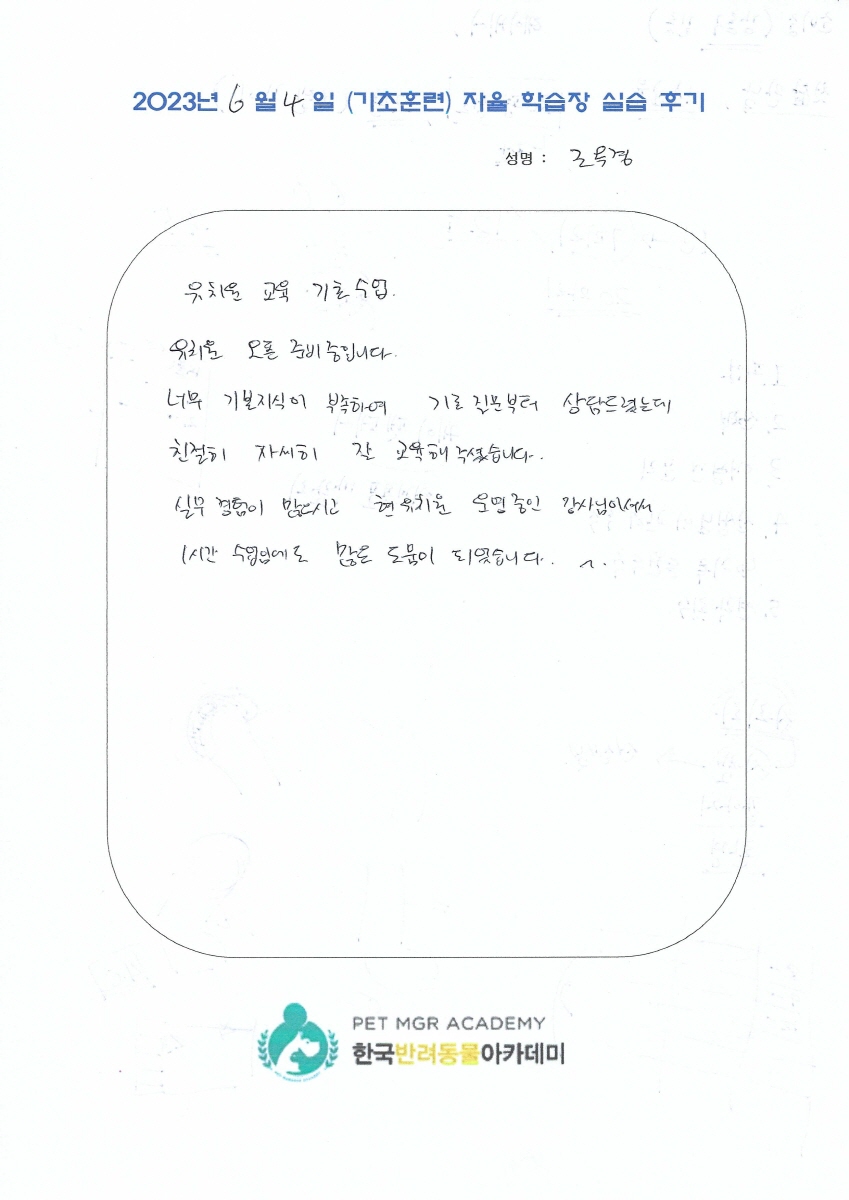 2023년 6월 4일 (기초훈련) 자율 학습장 실습 후기
성명 : 조옥경
유치원 교육 기초수업.
유치원 오픈 준비중입니다.
너무 기본지식이 부족하여 기초 질문부터 상담드렸는데
친절히 자세히 잘 교육해 주셨습니다.
실무 경험이 많으시고 현 유치원 운영중인 강사님이셔서
1시간 수업임에도 많은 도움이 되었습니다. ^.
PET MGR ACADEMY
한국반려동물아카데미